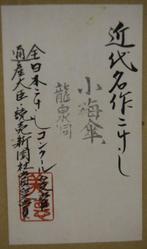 近代名作こけし
小梅傘
龍泉洞
全日本こけしコンクール受賞
通産大臣 読売新聞社賞受賞